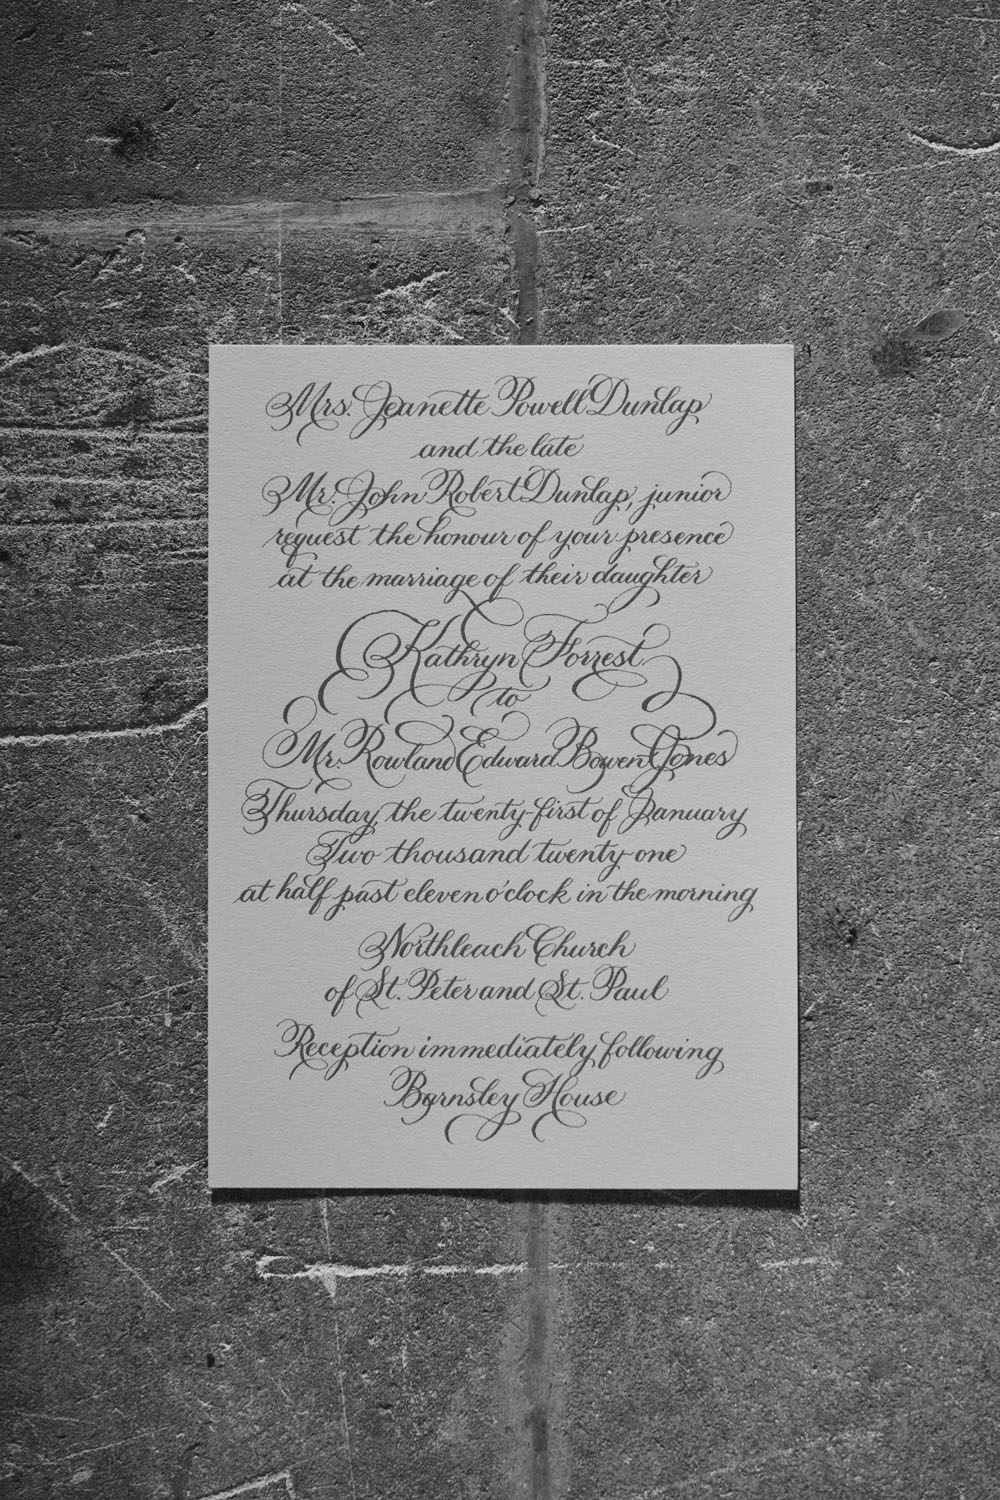 Mrs. Jeanette Powell Dunlap
and the late
Mr. John Robert Dunlap, junior
request the honour of your presence
at the marriage of their daughter
Kathryn Forrest
to
Mr. Rowland Edward Bowen Jones
Thursday, the twenty-first of January
Two thousand twenty-one
at half past eleven o'clock in the morning
Northleach Church
of St. Peter and St. Paul
Reception immediately following
Barnsley House